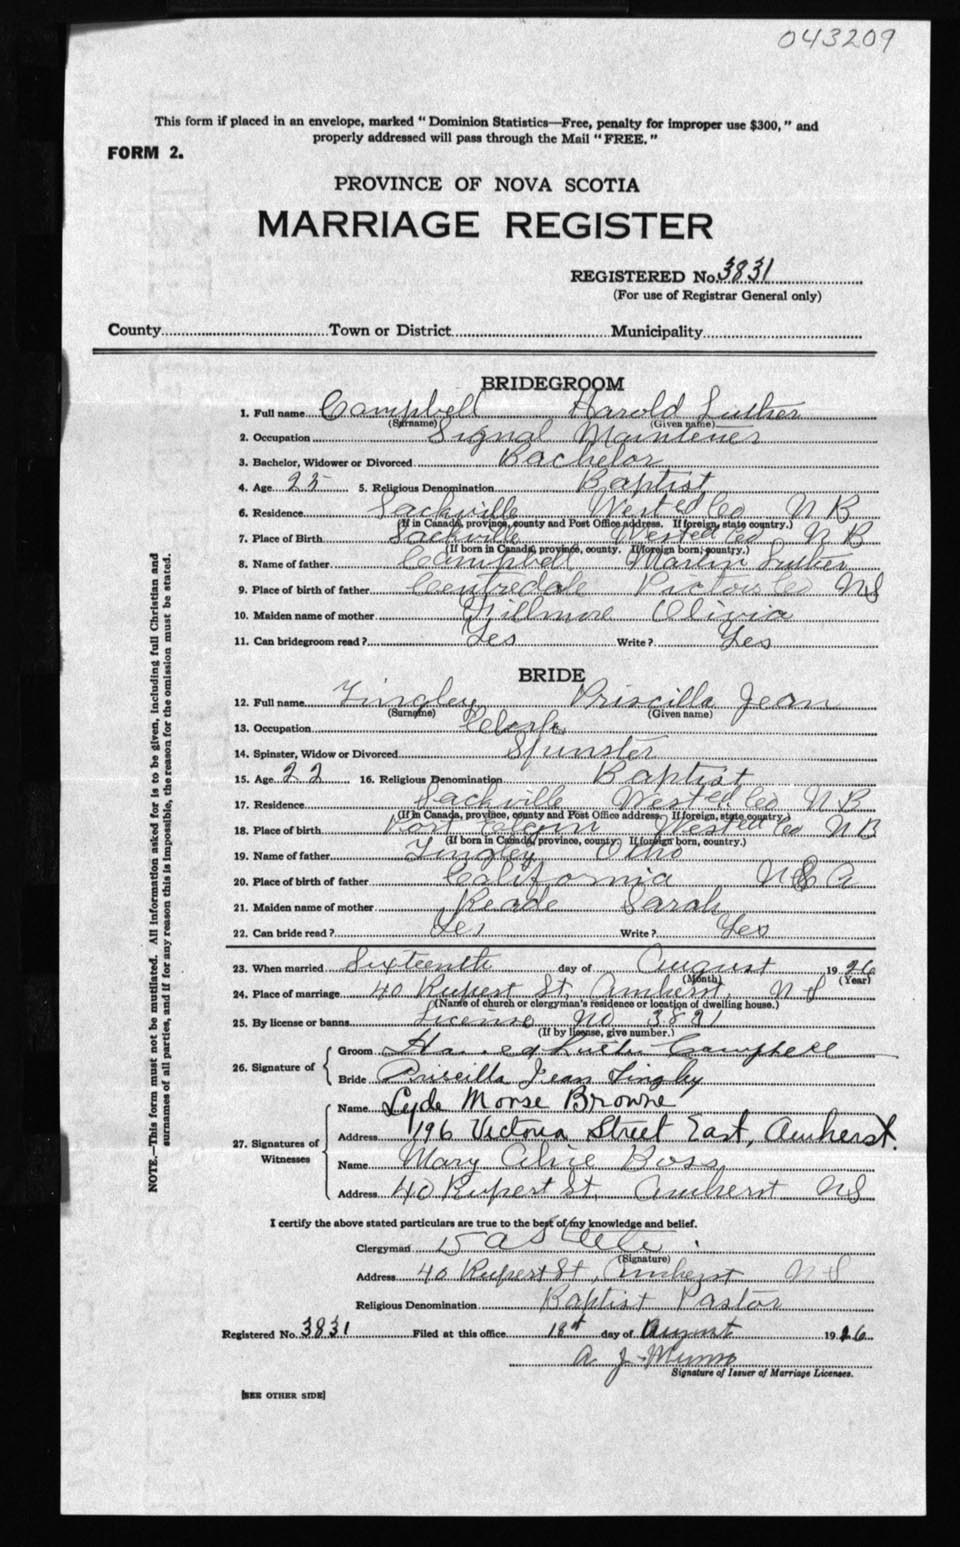 043209
This form if placed in an envelope, marked "Dominion Statistics—Free, penalty for improper use $300," and
properly addressed will pass through the Mail "FREE."
FORM 2.
PROVINCE OF NOVA SCOTIA
MARRIAGE REGISTER
REGISTERED No. 3831
(For use of Registrar General only)
County Town or District Municipality
BRIDEGROOM
1. Full name Campbell Harold Luther
(Surname) (Given name)
2. Occupation Signal Maintener
3. Bachelor, Widower or Divorced Bachelor
4. Age 25 5. Religious Denomination Baptist
6. Residence Sackville West'd Co N B
(If in Canada, province, county and Post Office address. If foreign, state country.)
7. Place of Birth Sackville West'd Co N B
(If born in Canada, province, county. If foreign born, country.)
8. Name of father Campbell Martin Luther
9. Place of birth of father Centredale Pictou Co NS
10. Maiden name of mother Fillmore Olivia
11. Can bridegroom read? Yes Write? Yes
BRIDE
12. Full name Tingley Priscilla Jean
(Surname) (Given name)
13. Occupation Clerk
14. Spinster, Widow or Divorced Spinster
15. Age 22 16. Religious Denomination Baptist
17. Residence Sackville West'd Co N B
(If in Canada, province, county and Post Office address. If foreign, state country.)
18. Place of birth Port Elgin West'd Co N B
(If born in Canada, province, county. If foreign born, country.)
19. Name of father Tingley Otho
20. Place of birth of father California U S A
21. Maiden name of mother Reade Sarah
22. Can bride read? Yes Write? Yes
23. When married Sixteenth day of August 1926
(Month) (Year)
24. Place of marriage 40 Rupert St, Amherst, N S
(Name of church or clergyman's residence or location of dwelling house.)
25. By license or banns License No 3831
(If by license, give number.)
26. Signature of
Groom Harold Luther Campbell
Bride Priscilla Jean Tingley
27. Signatures of Witnesses
Name Lyde Morse Browne
Address 196 Victoria Street East, Amherst.
Name Mary Alice Ross
Address 40 Rupert St. Amherst NS
I certify the above stated particulars are true to the best of my knowledge and belief.
Clergyman Steele
(Signature)
Address 40 Rupert St, Amherst N S
Religious Denomination Baptist Pastor
Registered No. 3831 Filed at this office 18th day of August 1926
A J Munro
Signature of Issuer of Marriage Licenses.
[SEE OTHER SIDE]
NOTE.—This form must not be mutilated. All information asked for is to be given, including full Christian and
surnames of all parties, and if for any reason this is impossible, the reason for the omission must be stated.